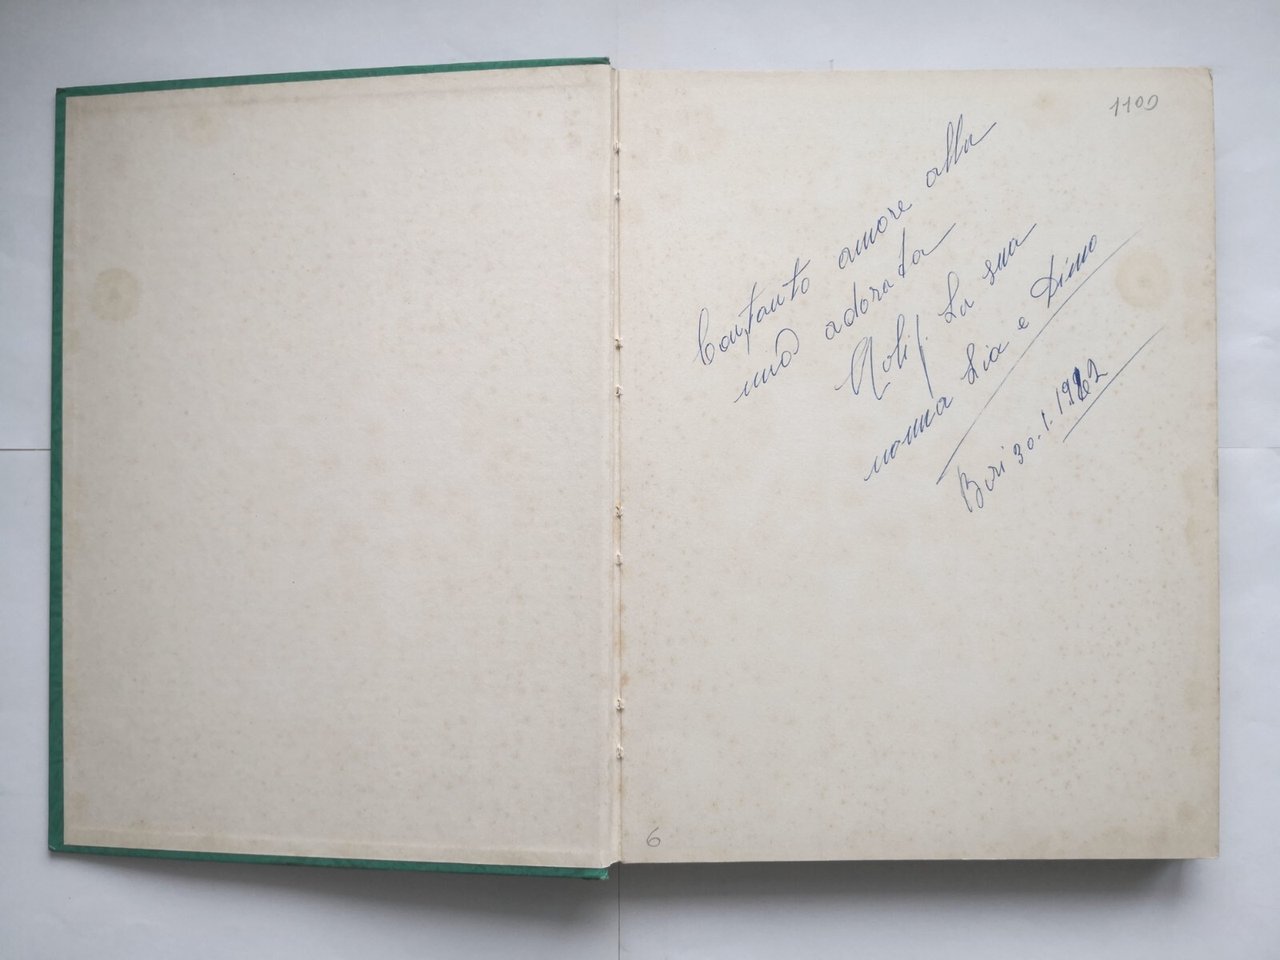 1100
Con tanto amore alla
mia adorata
La sua
nonna Lia e Dino
Bari 30.1.1962
6